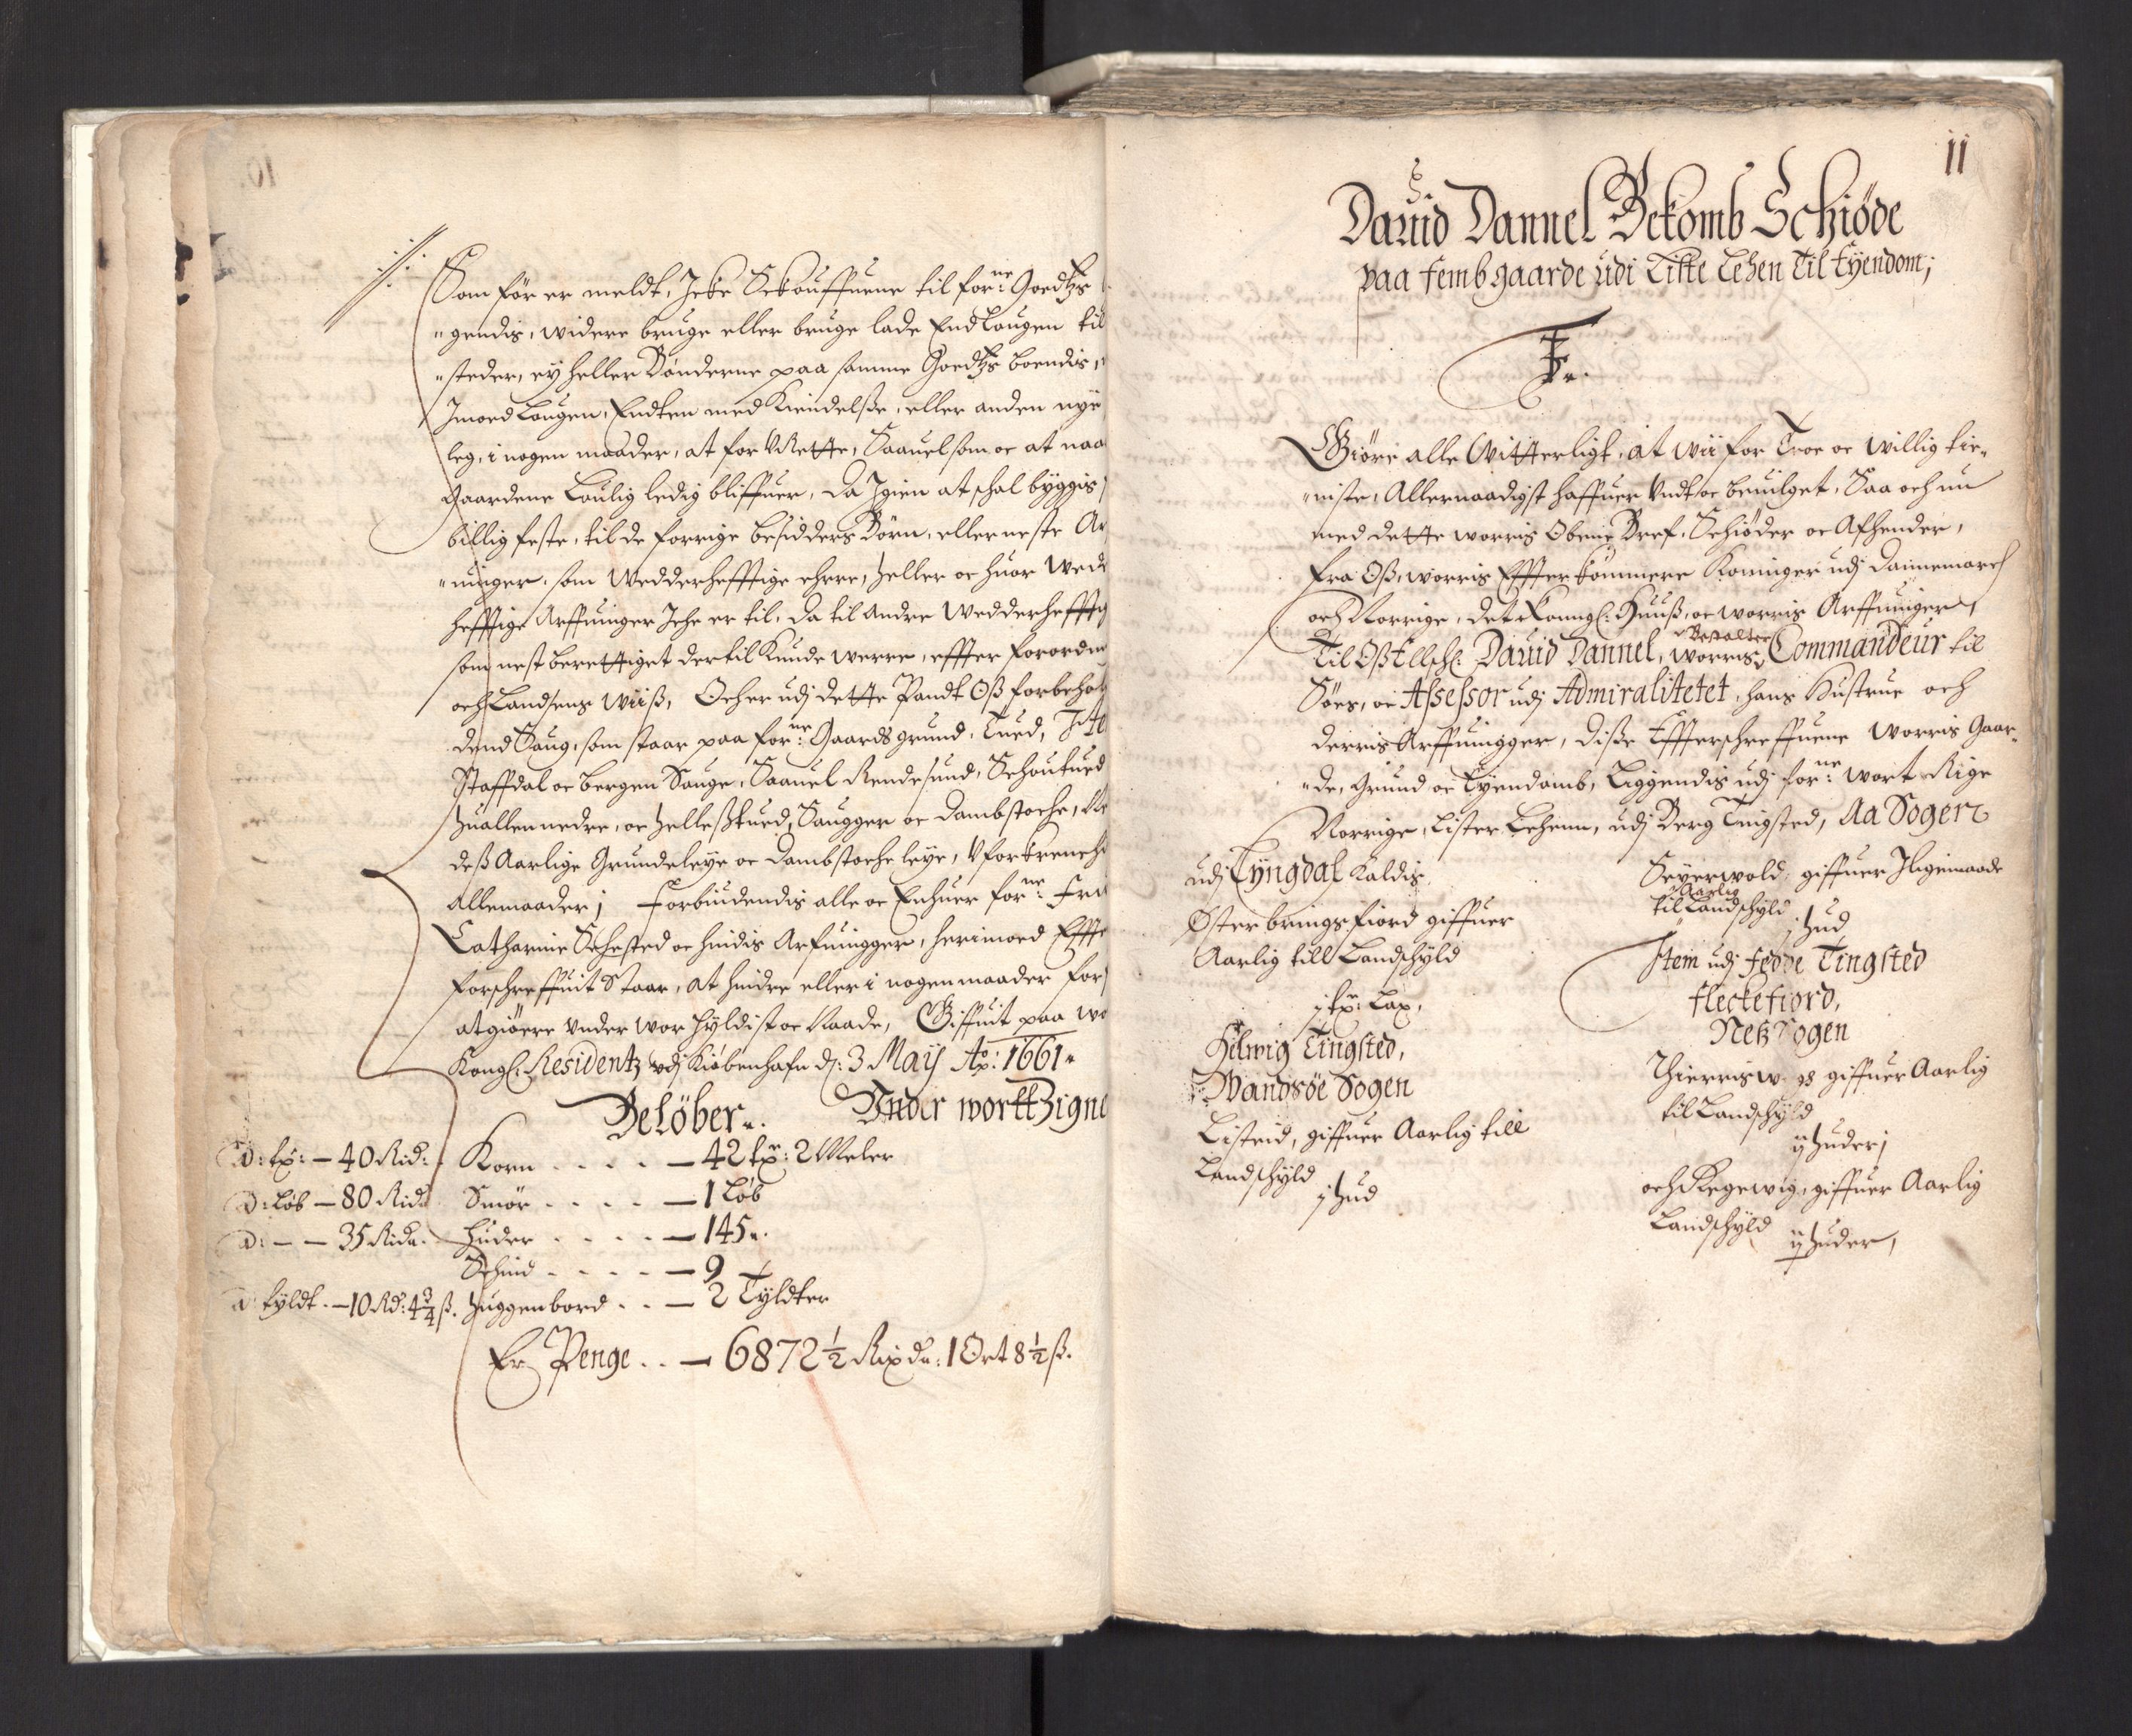 Som før er meldt, Icke Skouffuene til for:ne Goedtzs
"gendis, widere bruge eller bruge lade End Lougen til
"steder, ey heller Bønderne paa samme Goedtzs boendis,
Imoed Lougen, Endten med Kiendelße, eller anden nye
leg, i nogen maader, at for Vrette, Saauelsom oc at naa
Gaardene Loulig ledig bliffuer, da Igien at schal byggis
billig feste, til de forrige besidders Børn, eller neste Ar
"uinger, som Wedderhefftige ehre, heller oc huor Wed
hefftige Arffuinger Iche er til, da til andre Wedderheffti
som nest berettiget dertil Kunde werre, effter forordni
och Landsens Wiiß, Och er udj dette Pandt Oß forbehol
dend Saug, som staar paa for:ne Gaards grund, Tued,
Staffdal oc bergen Sauge, Saauel Rendesund, Schoutued
Huallen nedre, oc Helleßtued, Saugger oc Dambstoche,
deß Aarlige Grundeleye oc Dambstoche leye, Vforkrenchi
Allemaader; Forbiudendis alle oc Enhuer for:ne Fru
Catharine Sehested oc hindis Arfuingger, herimoed Effte
forschreffuit Staar, at hindre eller i nogen maader for
at giøre Vnder wor Hyldist oc Naade, Giffuit paa wo
Kongl: Residentz udj Kiøbenhafn d: 3 Maÿ Ao: 1661"
Beløber". Vnder wortt Zigne
a: tø: — 40 Rid: Korn . . . . — 42 tø: 2 Meler
a: Løb — 80 Rid Smør . . . . — 1 Løb
a: — — 35 Rida. Huder . . . . — 145".
Schind . . . . . — 9
a tyldt. — 10 Rd: 4 3/4 ß. Huggenbord . . . — 2 Tyldter
Er Penge . . — 6872 1/2 Rixda: 1 Ort 8 1/2 ß.
11
Dauid Dannel Bekomb Schiøde
paa femb gaarde udi Liste Lehen Til Eyendom;
F3.
Giøre alle Witterligt, at Wii for Troe oc Willig tie-
"niste, Allernaadigst haffuer Undt oc beuilget, Saa och nu
med dette worris Obene Bref, Schiøder oc Afhender,
fra Oß, worris Effterkommere Koninger udj Dannemarch
och Norrige, det Konngl: Huuß, oc worris Arffuinger,
Til Oß Elschl: Dauid Dannel, worris Bestalter Commandeur til
Søes, oc Assessor udj Admiralitetet, hans Hustrue och
derris Arffuingger, diße Effterschreffuene Worris Gaar-
"de, Grund oc Eyendomb, Liggendis udj for:ne wort Rige
Norrige, Lister Lehenn, udj Berg Tingsted, Aa Sogen
udj Lyngdal Kaldis
Øster brings fiord giffuer
Aarlig till Landschyld
j tø: Lax,
Helwig Tingsted,
Wandsøe Sogen
Listeid, giffuer Aarlig till
Landschyld
j Hud
Seyerwold, giffuer Iligemaade
Aarlig
til Landschyld
j Hud
Item udj Fedde Tingsted
Fleckefiord,
Netz Sogen
Thierrisw giffuer Aarlig
til Landschyld
ij Huder;
och Regewig, giffuer Aarlig
Landschyld
ij Huder,